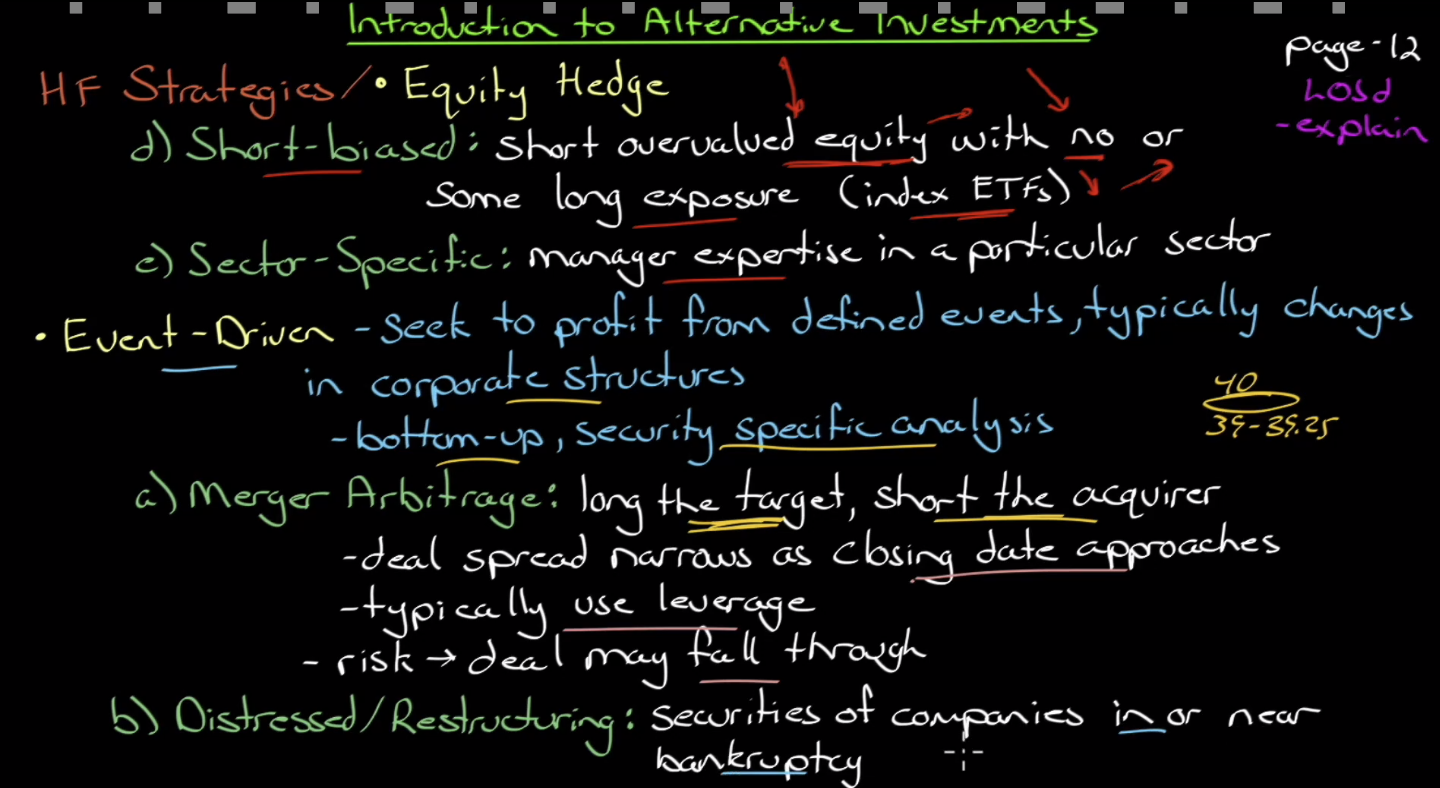 Introduction to Alternative Investments
page-12
LOSd
-explain
HF Strategies/ • Equity Hedge
d) Short-biased: short overvalued equity with no or
some long exposure (index ETFs)
e) Sector-Specific: manager expertise in a particular sector
• Event-Driven - seek to profit from defined events, typically changes
in corporate structures
40
39-39.25
-bottom-up, security specific analysis
a) Merger Arbitrage: long the target, short the acquirer
-deal spread narrows as closing date approaches
-typically use leverage
- risk → deal may fall through
b) Distressed/Restructuring: securities of companies in or near
bankruptcy